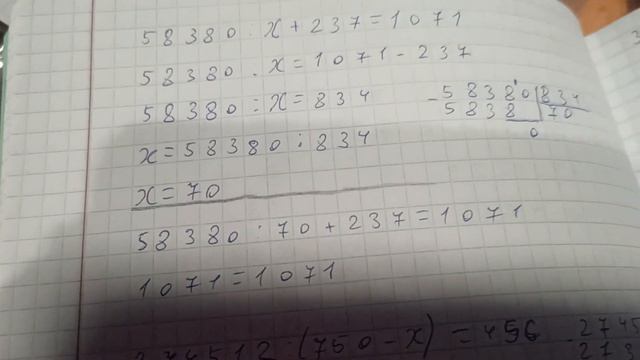 58380 : x + 237 = 1071
58380 : x = 1071 - 237
58380 : x = 834
x = 58380 : 834
x = 70
58380 : 70 + 237 = 1071
1071 = 1071
- 58380 | 834
5838 | 70
0
(750 - x) = 456